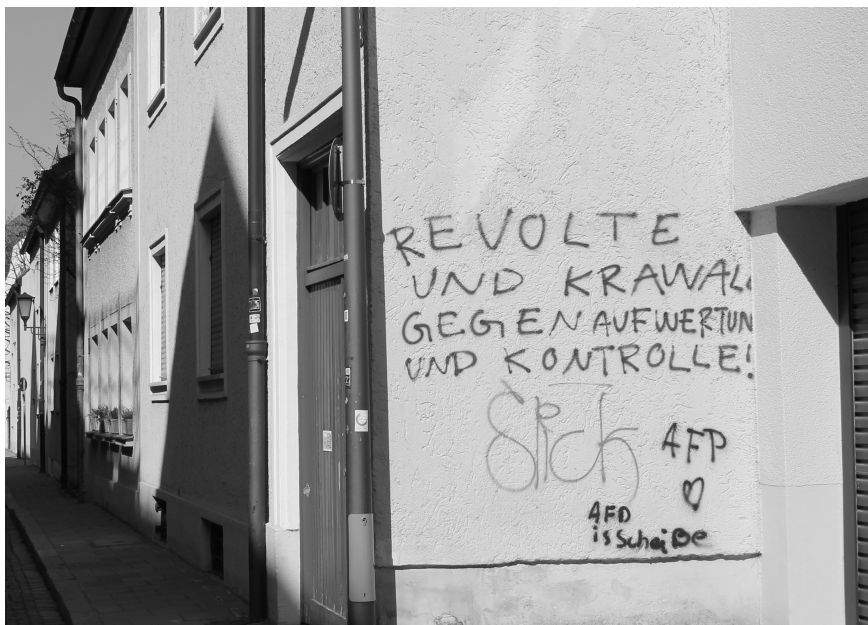 REVOLTE
UND KRAWALL
GEGEN AUFWERTUN
UND KONTROLLE!
Slick
AFP
♡
AFD
is Scheiße